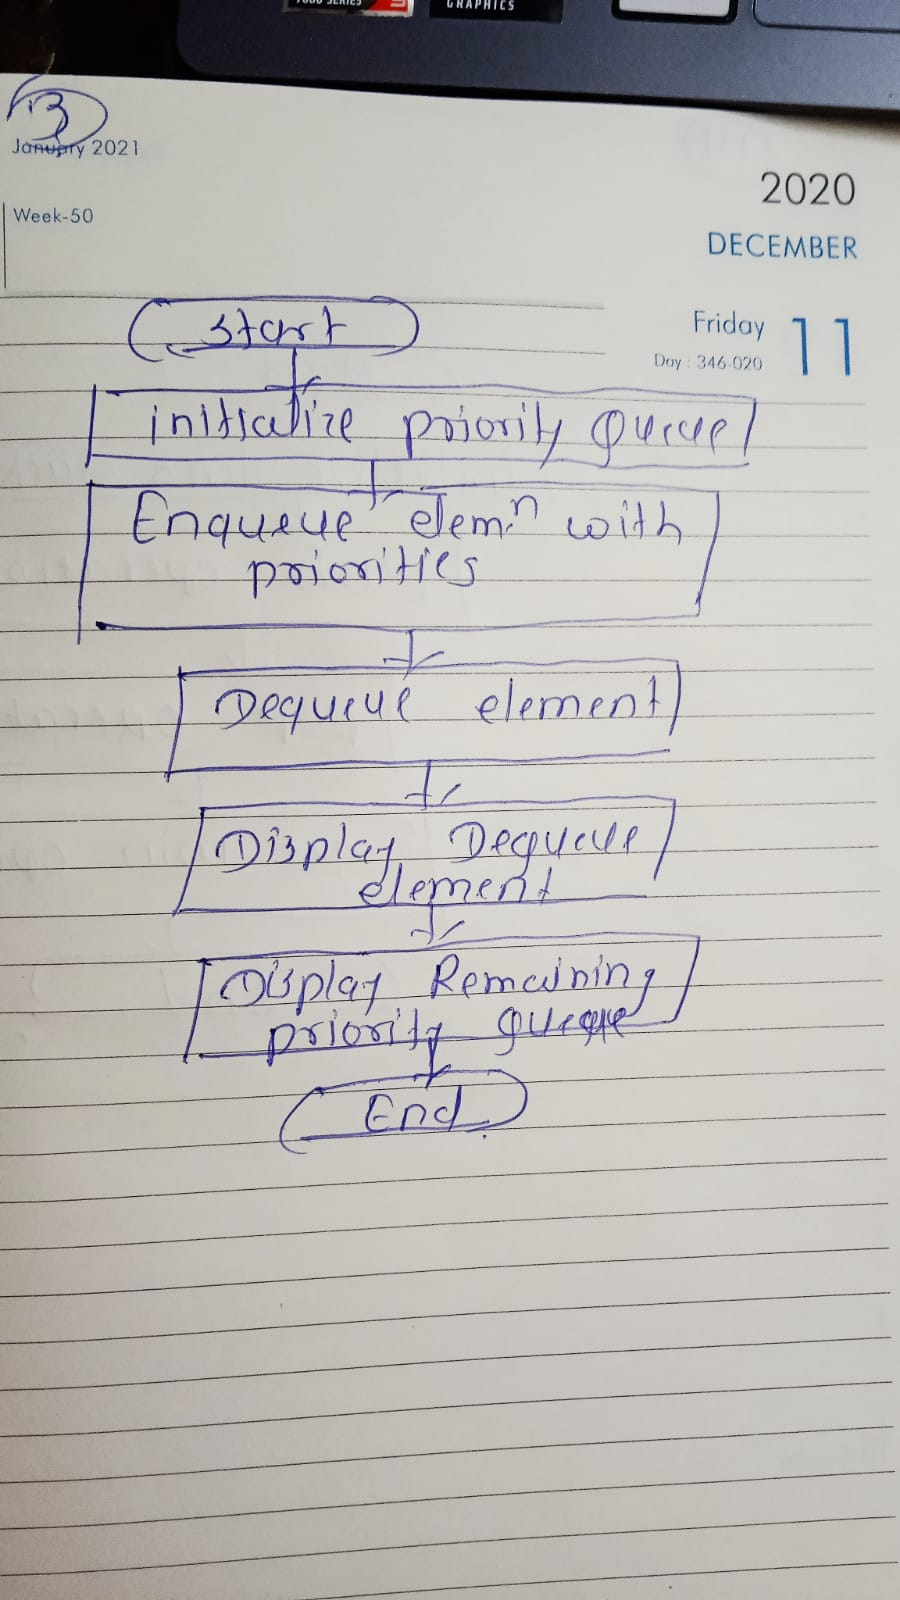 7000 SERIES
GRAPHICS
13
January 2021
2020
Week-50
DECEMBER
Friday 11
Day : 346-020
Start
initialize priority Queue
Enqueue elemn with
priorities
Dequeue element
Display Dequeue
element
Display Remaining
priority queue
End